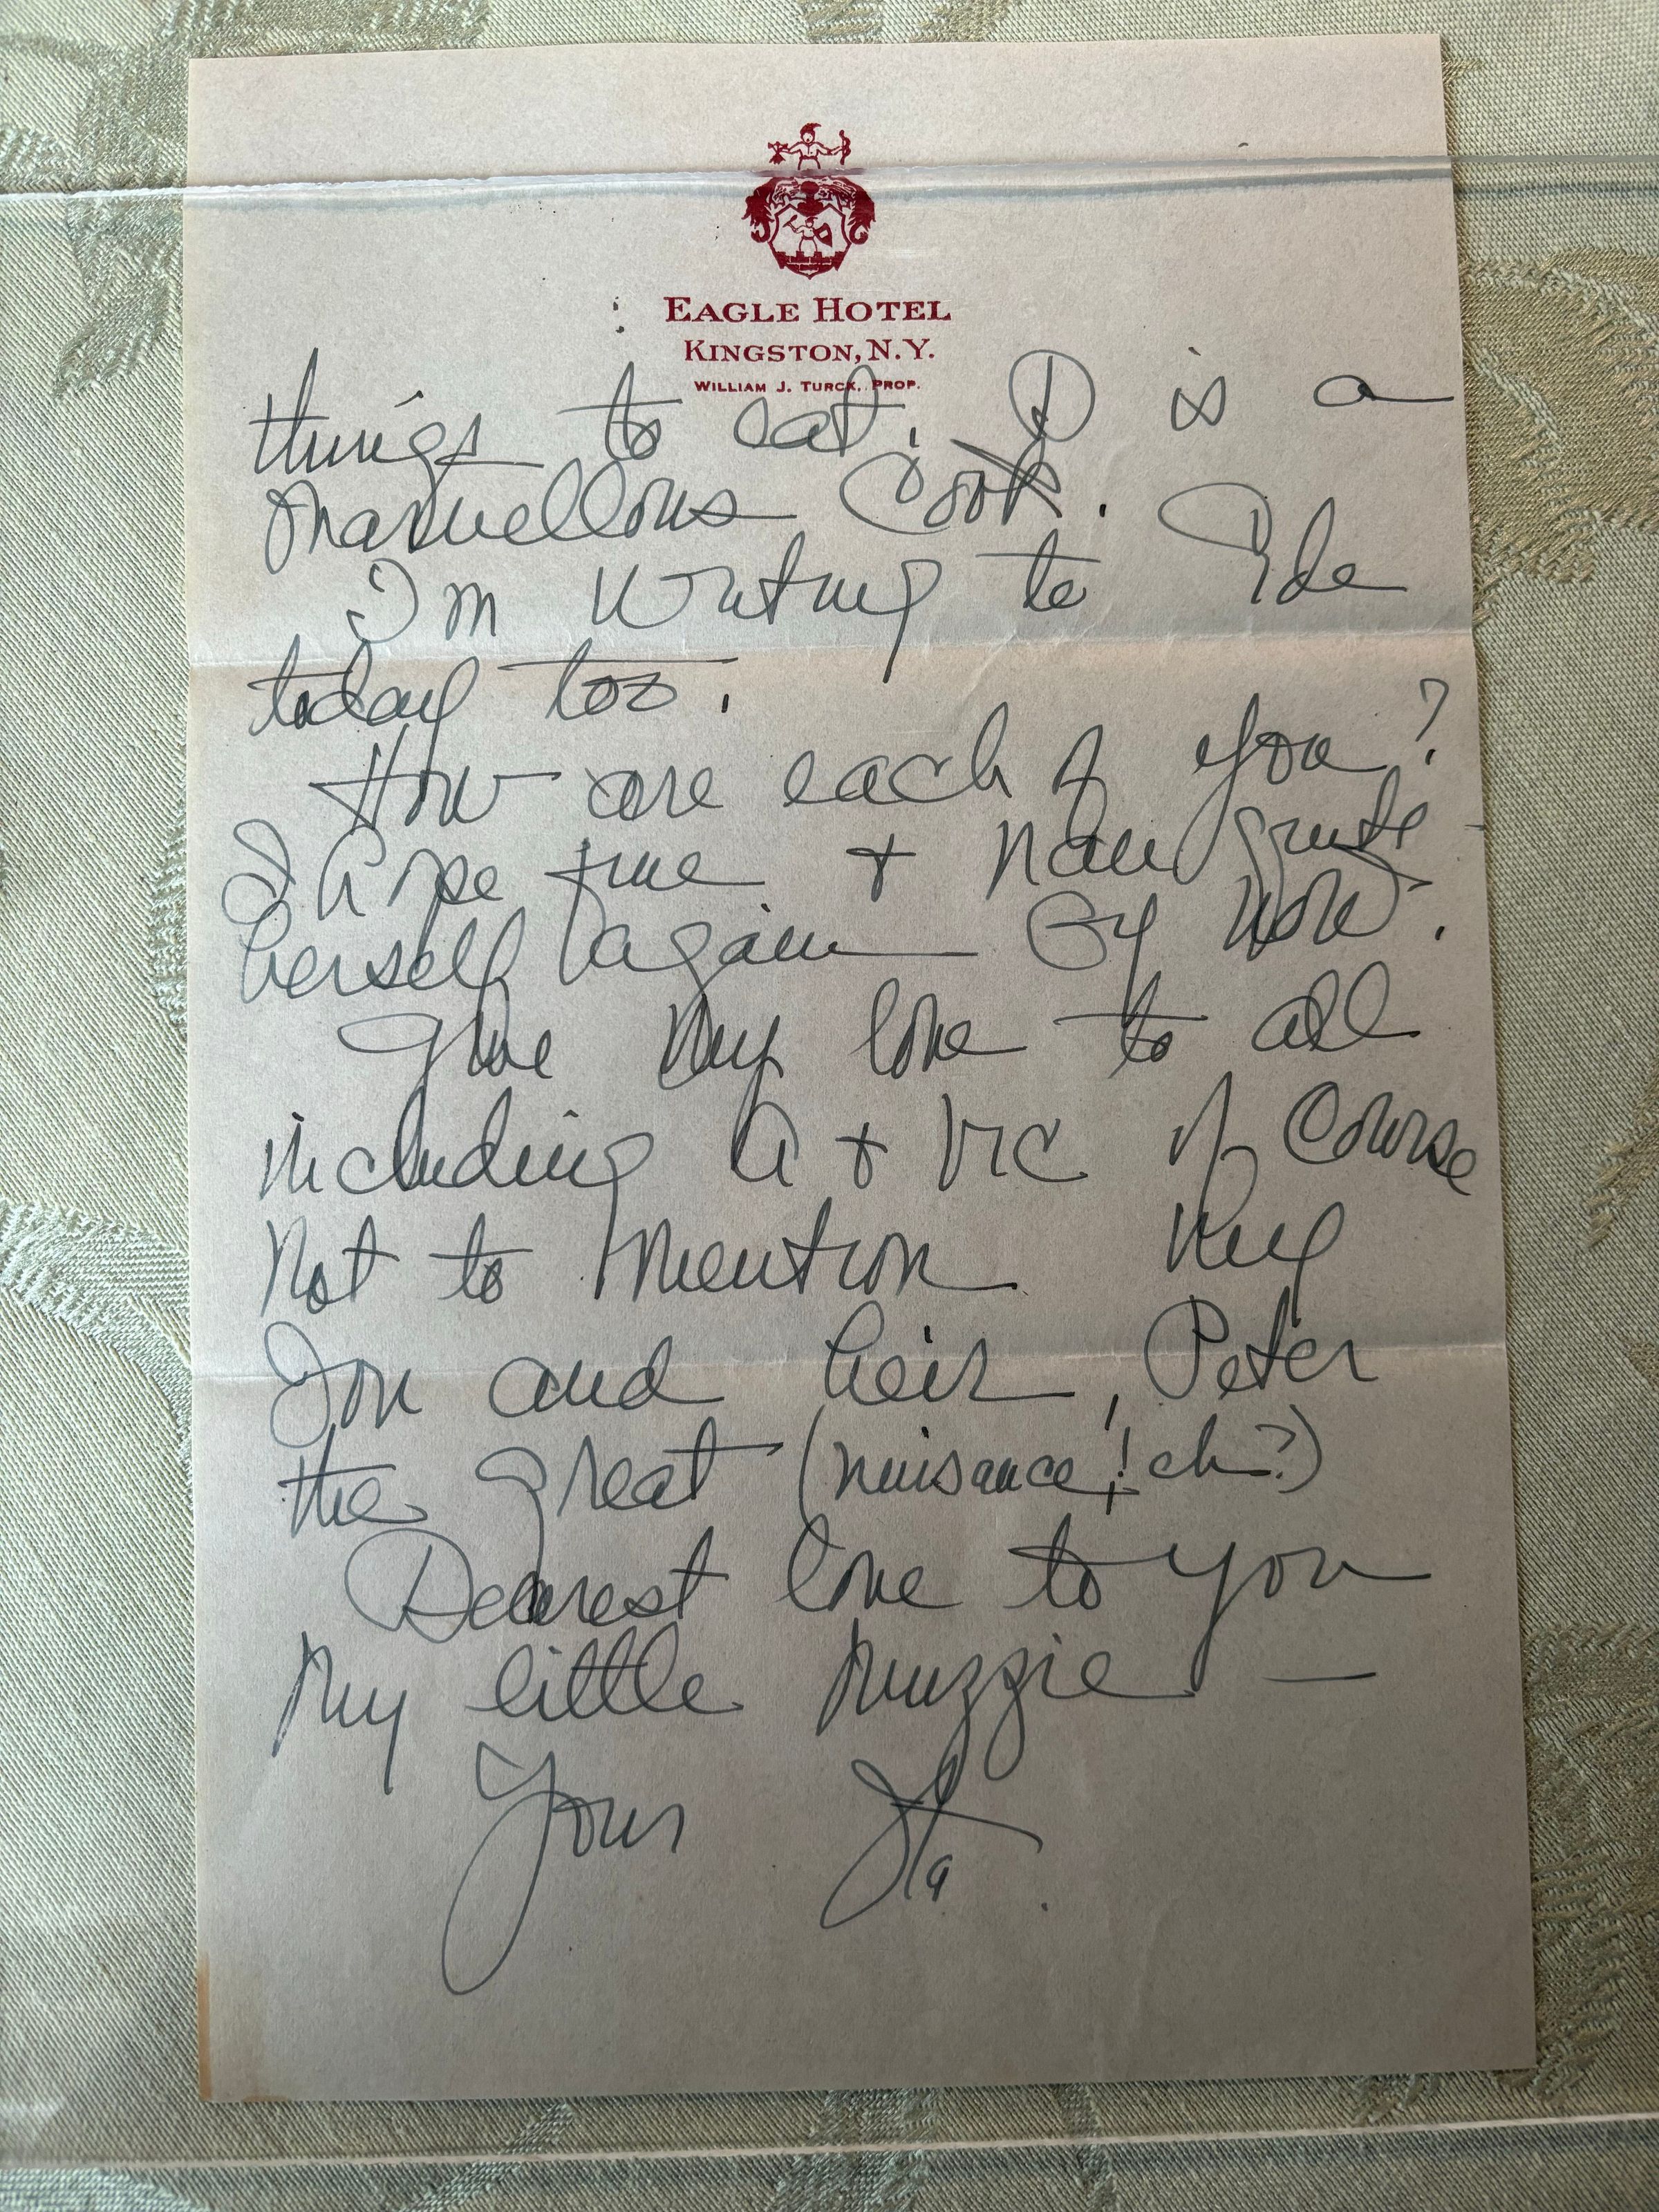 EAGLE HOTEL
KINGSTON, N.Y.
WILLIAM J. TURCK, PROP.
things to eat. D is a
marvellous Cook.
I'm writing to Ide
today too.
How are each of you?
I hope fine & Nan quite
herself again by now.
Give my love to all
including A & Vic of course
not to mention my
Son and heir, Peter
the great (nuisance! eh?)
Dearest love to you
my little muzzie —
Your Sta.